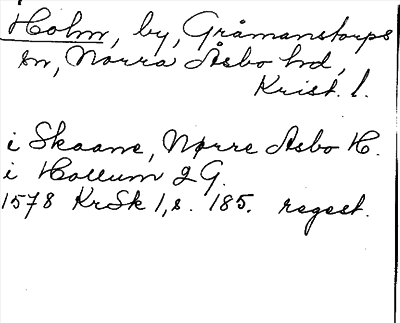 Holm, by, Gråmanstorps
sn, Norra Åsbo hd,
Krist. l.
i Skaane, Nørre Asbo H.
i Hollum 2 G.
1578 KrSk 1, s. 185. regest.